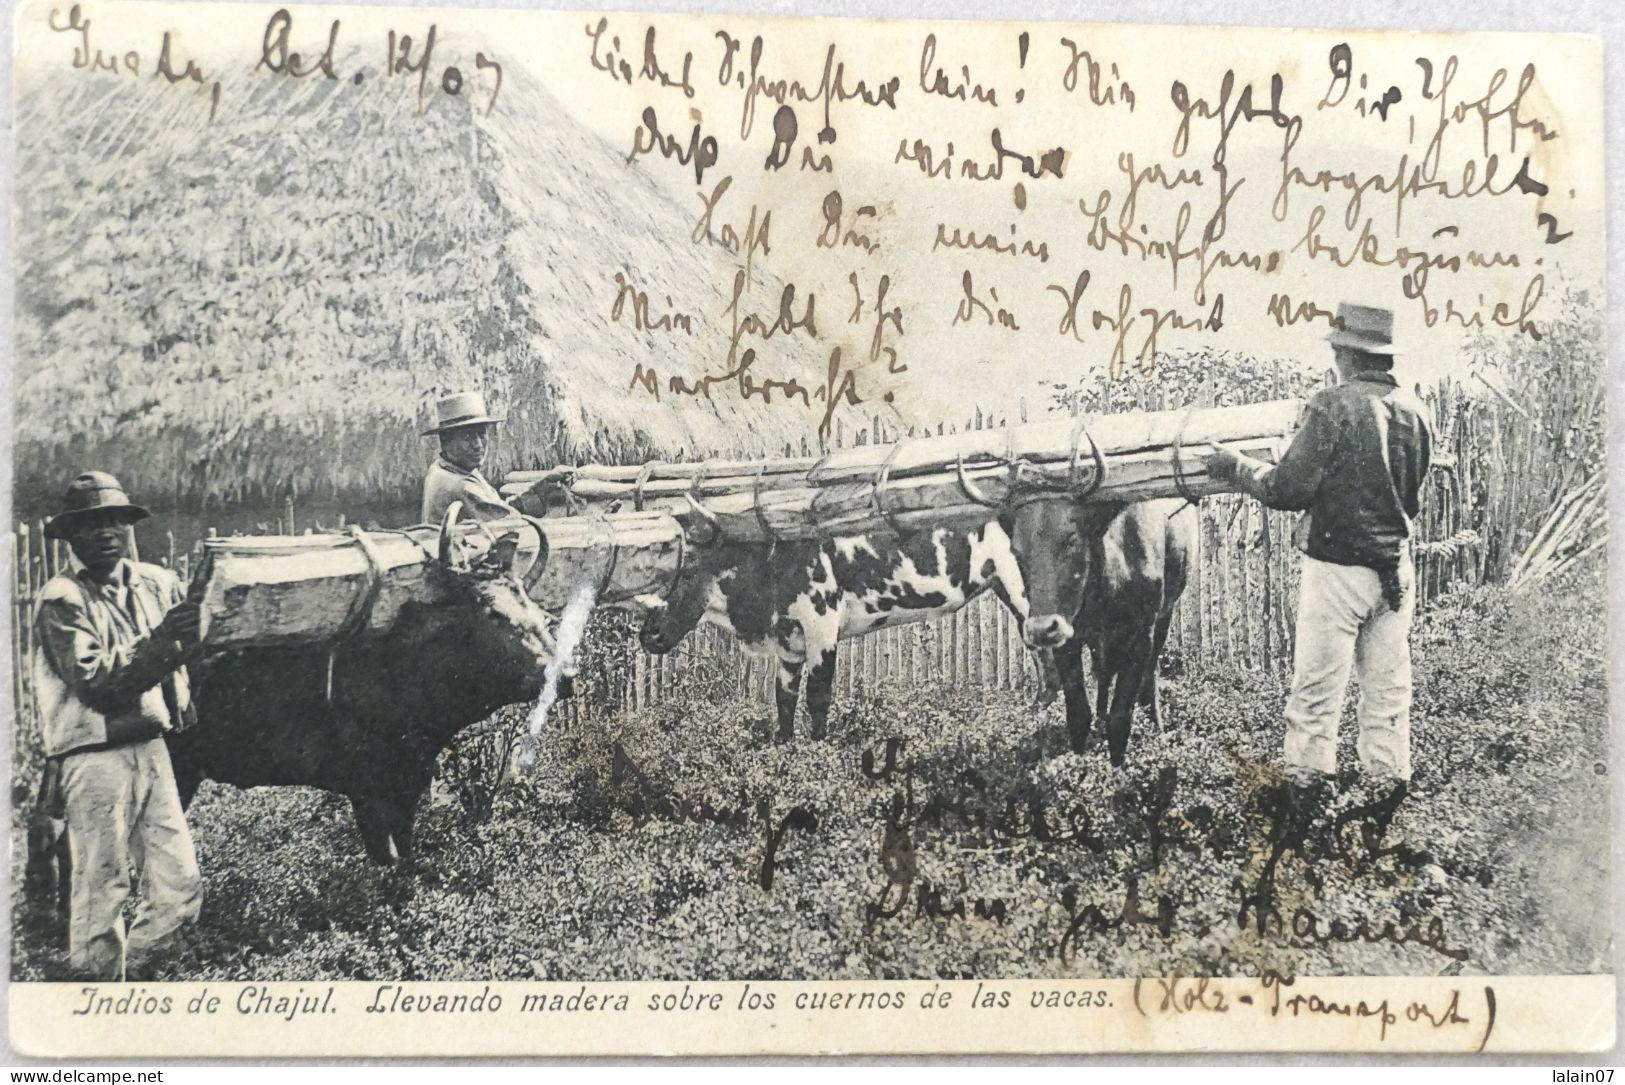 Guate, Oct. 12/07
Liebes Schwesterlein! Wie gehts Dir, hoffe
daß Du wieder ganz hergestellt.
Hast Du mein Briefchen bekommen?
Wie habt Ihr die Hochzeit von Erich
verbracht?
Grüße
Dein
Indios de Chajul. Llevando madera sobre los cuernos de las vacas. (Holz-Transport)
delcampe.net
lalain07